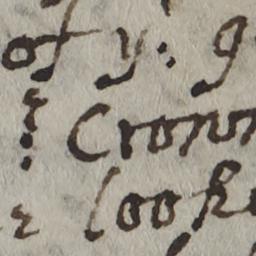 of y: g
: Crown
look